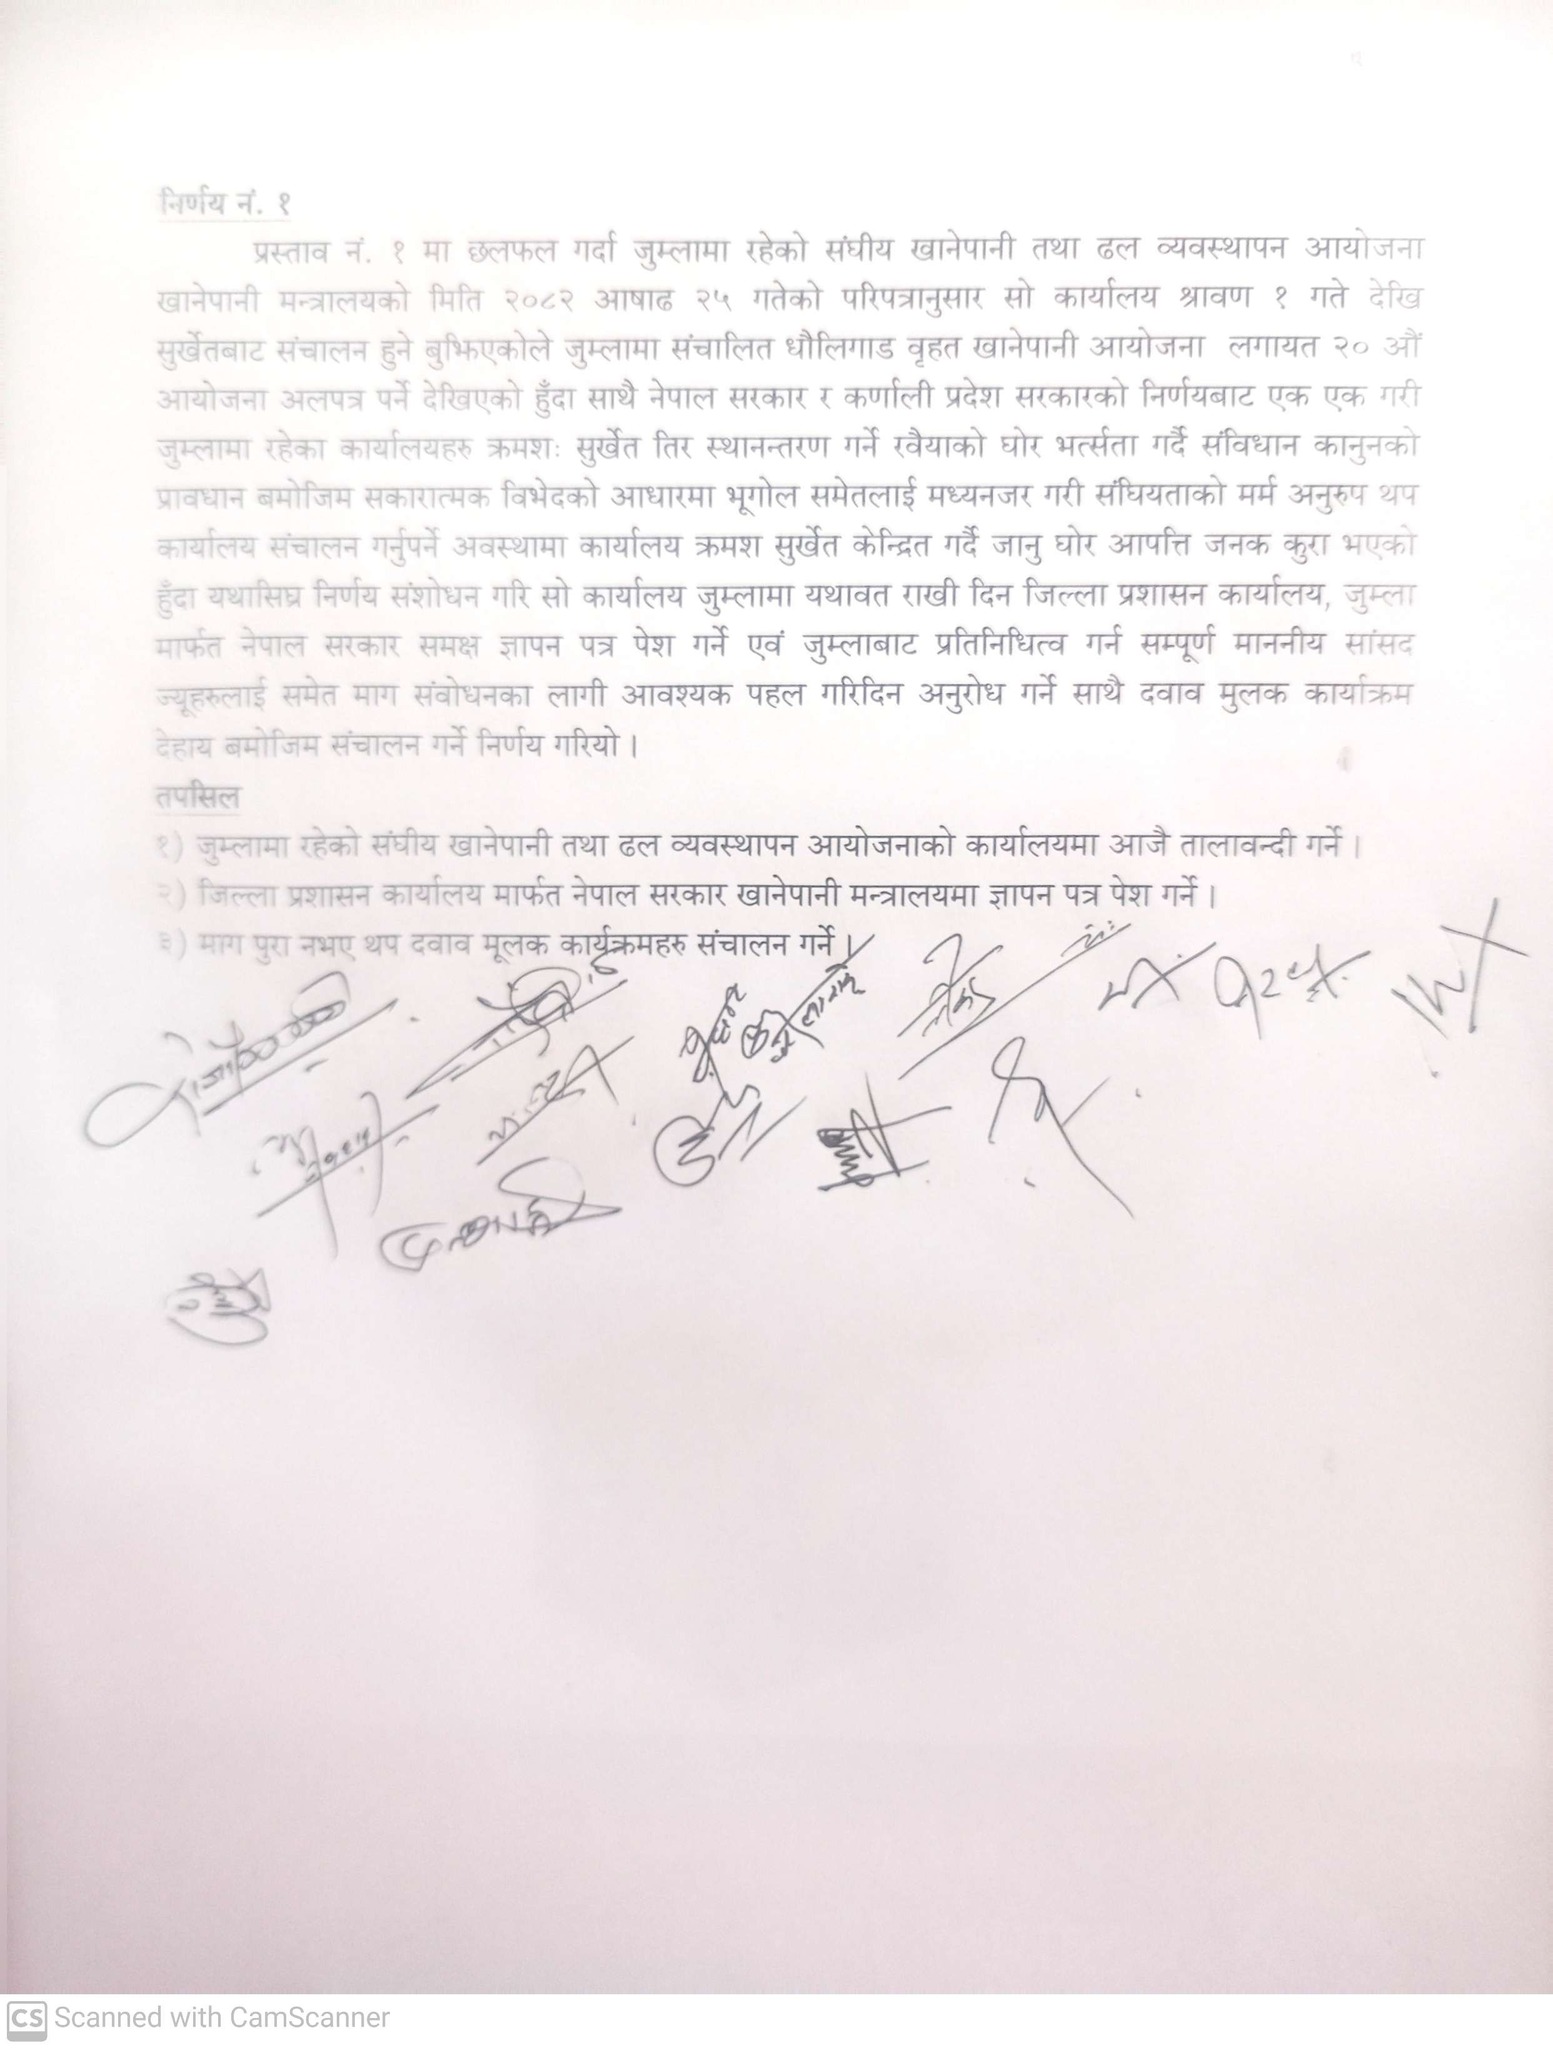 निर्णय नं. १
प्रस्ताव नं. १ मा छलफल गर्दा जुम्लामा रहेको संघीय खानेपानी तथा ढल व्यवस्थापन आयोजना
खानेपानी मन्त्रालयको मिति २०८२ आषाढ २५ गतेको परिपत्रानुसार सो कार्यालय श्रावण १ गते देखि
सुर्खेतबाट संचालन हुने बुझिएकोले जुम्लामा संचालित धौलिगाड वृहत खानेपानी आयोजना लगायत २० औं
आयोजना अलपत्र पर्ने देखिएको हुँदा साथै नेपाल सरकार र कर्णाली प्रदेश सरकारको निर्णयबाट एक एक गरी
जुम्लामा रहेका कार्यालयहरु क्रमशः सुर्खेत तिर स्थानन्तरण गर्ने रवैयाको घोर भर्त्सता गर्दै संविधान कानुनको
प्रावधान बमोजिम सकारात्मक विभेदको आधारमा भूगोल समेतलाई मध्यनजर गरी संघियताको मर्म अनुरुप थप
कार्यालय संचालन गर्नुपर्ने अवस्थामा कार्यालय क्रमश सुर्खेत केन्द्रित गर्दै जानु घोर आपत्ति जनक कुरा भएको
हुँदा यथासिघ्र निर्णय संशोधन गरि सो कार्यालय जुम्लामा यथावत राखी दिन जिल्ला प्रशासन कार्यालय, जुम्ला
मार्फत नेपाल सरकार समक्ष ज्ञापन पत्र पेश गर्ने एवं जुम्लाबाट प्रतिनिधित्व गर्न सम्पूर्ण माननीय सांसद
ज्यूहरुलाई समेत माग संवोधनका लागी आवश्यक पहल गरिदिन अनुरोध गर्ने साथै दवाव मुलक कार्याक्रम
देहाय बमोजिम संचालन गर्ने निर्णय गरियो ।
तपसिल
१) जुम्लामा रहेको संघीय खानेपानी तथा ढल व्यवस्थापन आयोजनाको कार्यालयमा आजै तालावन्दी गर्ने ।
२) जिल्ला प्रशासन कार्यालय मार्फत नेपाल सरकार खानेपानी मन्त्रालयमा ज्ञापन पत्र पेश गर्ने ।
३) माग पुरा नभए थप दवाव मूलक कार्यक्रमहरु संचालन गर्ने ।
CS Scanned with CamScanner